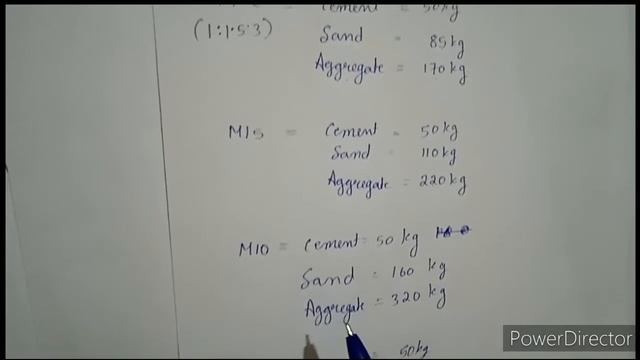 = Cement = 50 kg
(1:1.5:3) Sand = 85 kg
Aggregate = 170 kg
M15 = Cement = 50 kg
Sand = 110 kg
Aggregate = 220 kg
M10 = Cement = 50 kg
Sand = 160 kg
Aggregate = 320 kg
= 50 kg
PowerDirector